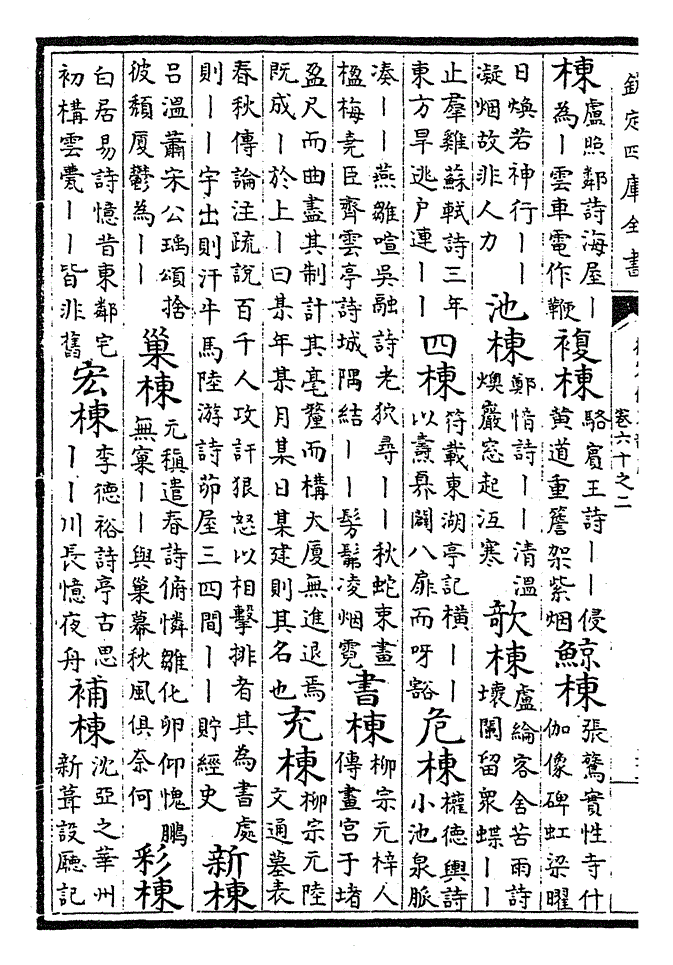 欽定四庫全書
卷六十之二
棟盧照鄰詩海屋丨為丨雲車電作鞭複棟駱賓王詩丨丨侵黄道重簷架紫烟鯨棟張鷟實性寺什伽像碑虹梁曜
日煥若神行丨丨凝烟故非人力池棟鄭愔詩丨丨清溫燠巖窓起沍寒欹棟盧綸客舍苦雨詩壞闌留衆蝶丨丨
止羣雞蘇軾詩三年東方旱逃户連丨丨四棟符載東湖亭記横丨丨以壽鼎闢八扉而呀豁危棟權德輿詩小池泉脈
湊丨丨燕雛喧吳融詩老狖尋丨丨秋蛇束畫楹梅堯臣齊雲亭詩城隅結丨丨髣髴凌烟霓書棟柳宗元梓人傳畫宫于堵
盈尺而曲盡其制計其毫釐而構大厦無進退焉既成丨於上丨曰某年某月某日某建則其名也充棟柳宗元陸文通墓表
春秋傳論注疏說百千人攻訐狠怒以相擊排者其為書處則丨丨宇出則汗牛馬陸游詩茆屋三四間丨丨貯經史新棟
吕溫蕭宋公瑀頌捨彼頹厦鬱為丨丨巢棟元稹遣春詩俯憐雛化卵仰愧鵬無窠丨丨與巢幕秋風俱奈何彩棟
白居易詩憶昔東鄰宅初構雲甍丨丨皆非舊宏棟李德裕詩亭古思丨丨川長憶夜舟補棟沈亞之華州新葺設廳記